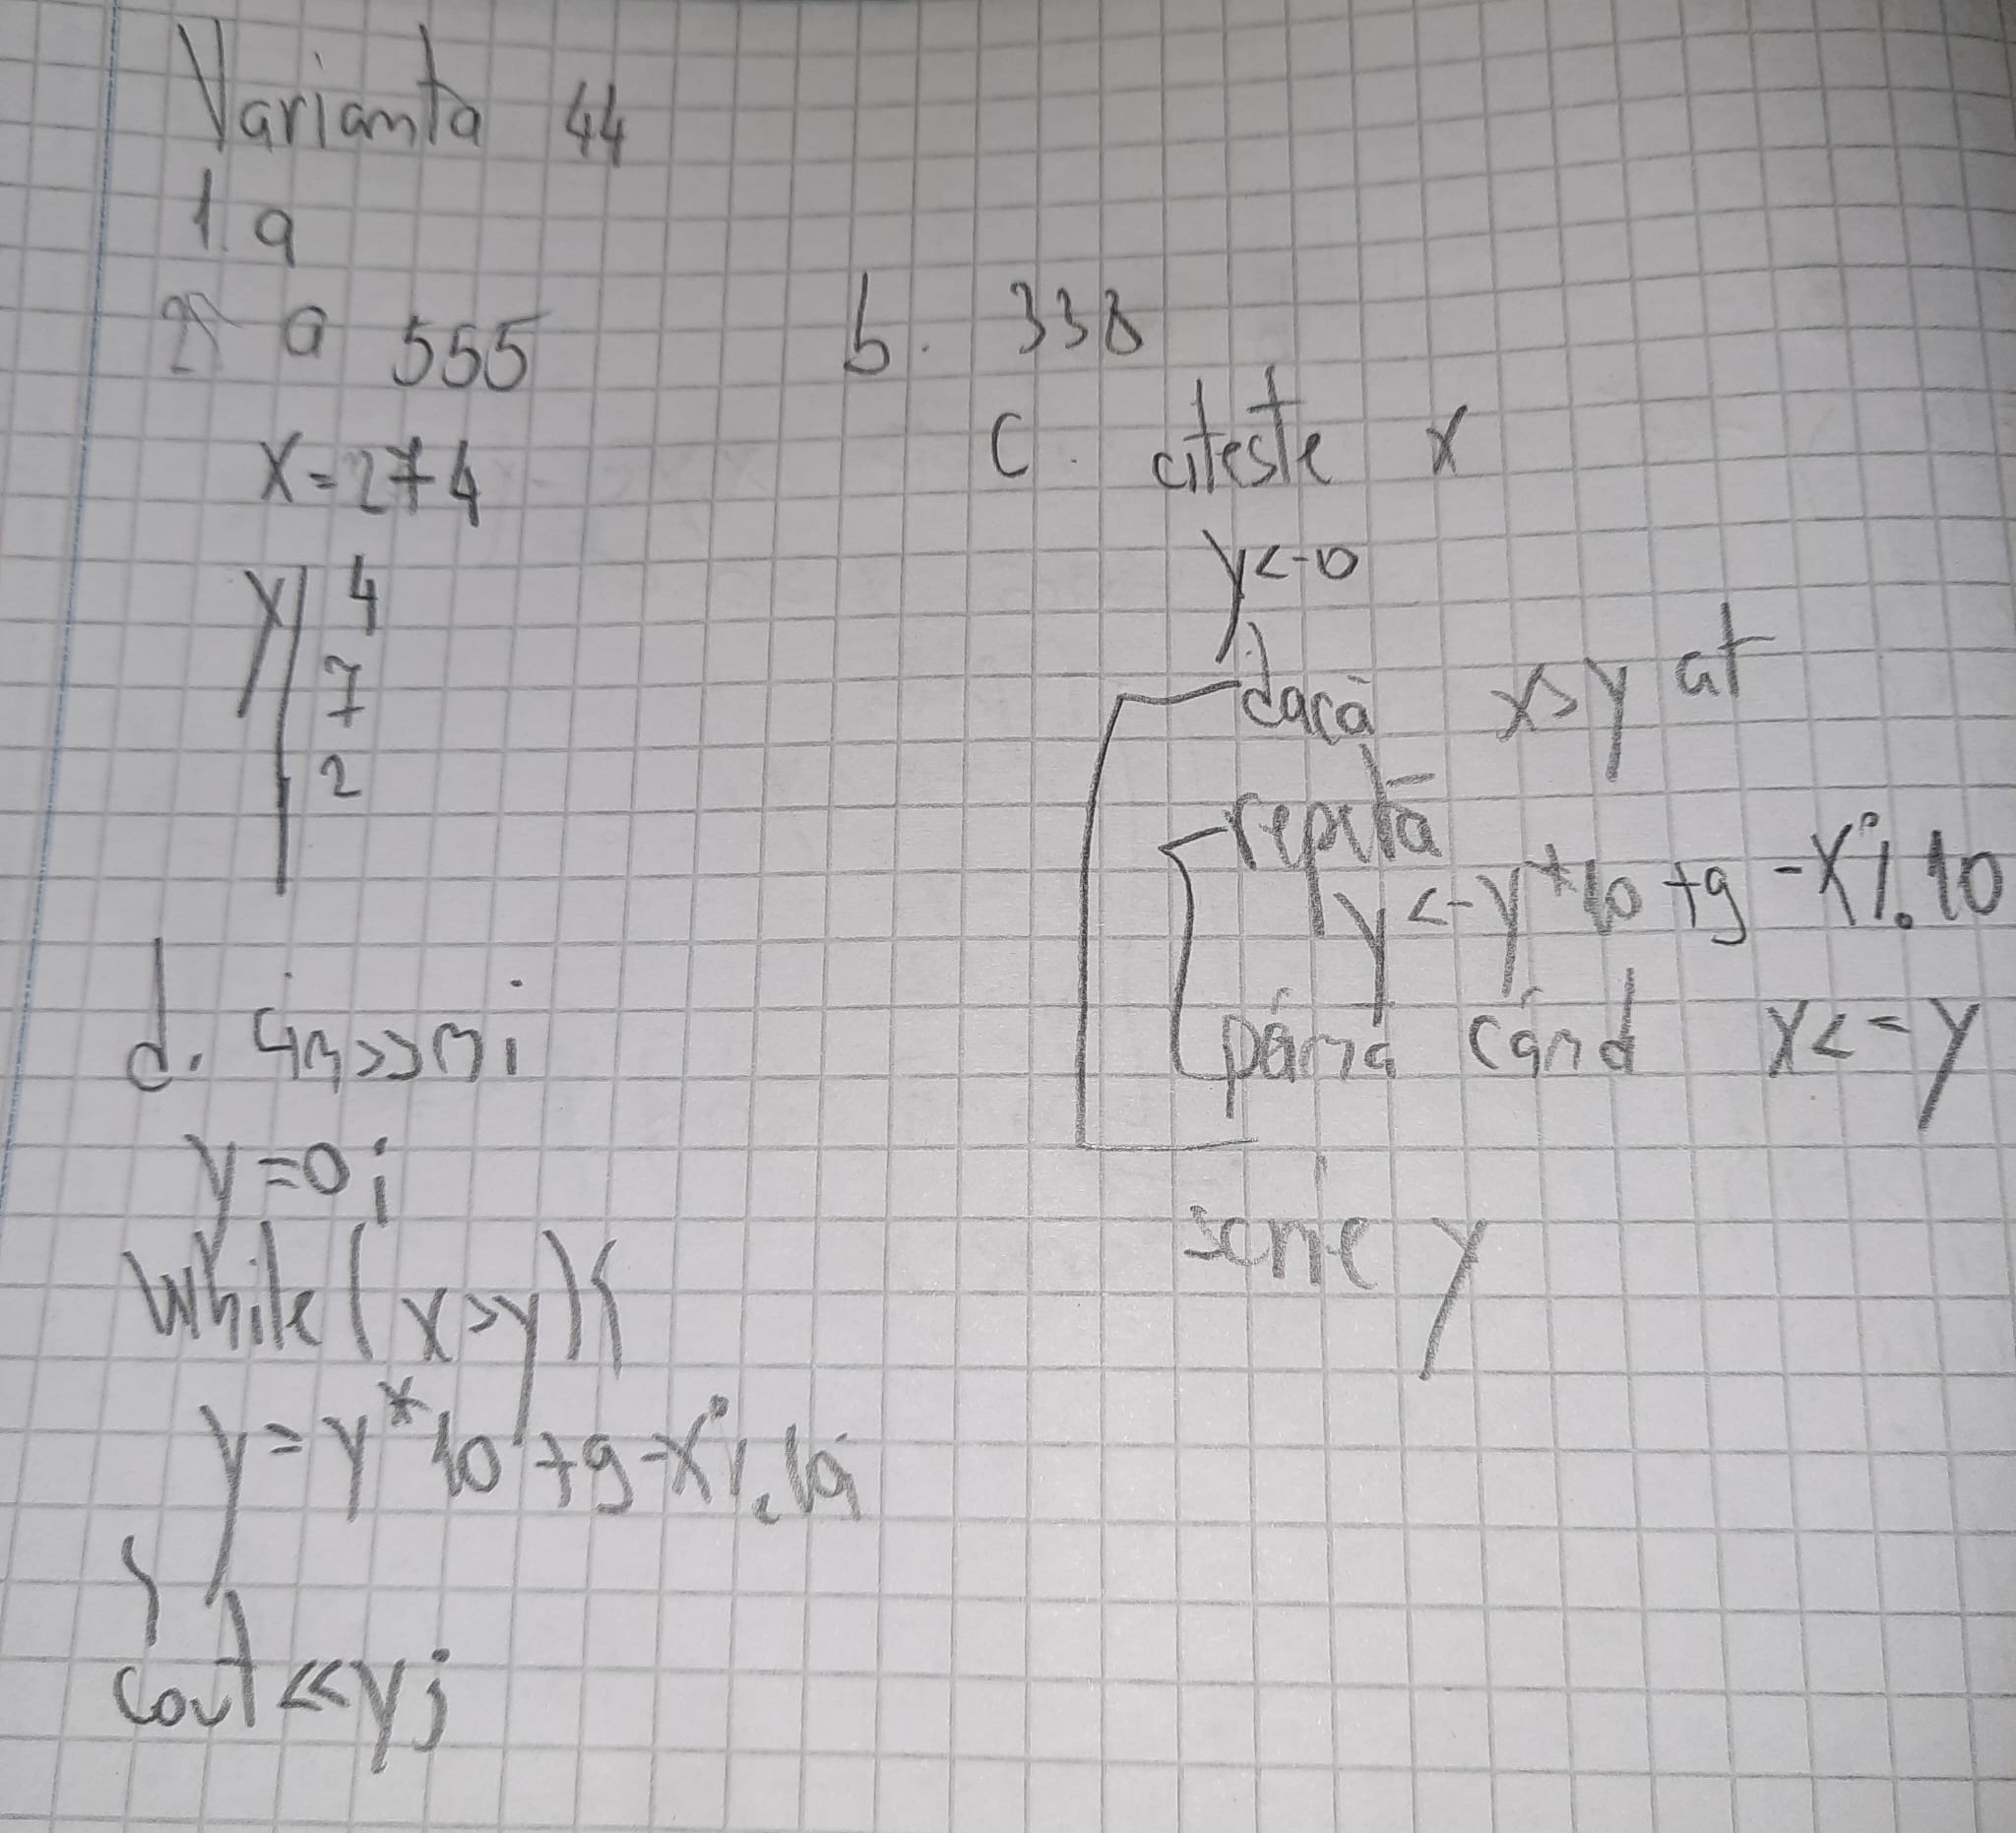 Varianta 44
1. a
2. a 555
x=274
y 4
7
2
b. 338
c. citeste x
y<-0
dacă x>y at
repetă
y<-y*10+9-x%10
până când x<=y
scrie y
d. cin>>n;
y=0;
while(x>y){
y=y*10+9-x%10;
}
cout<<y;